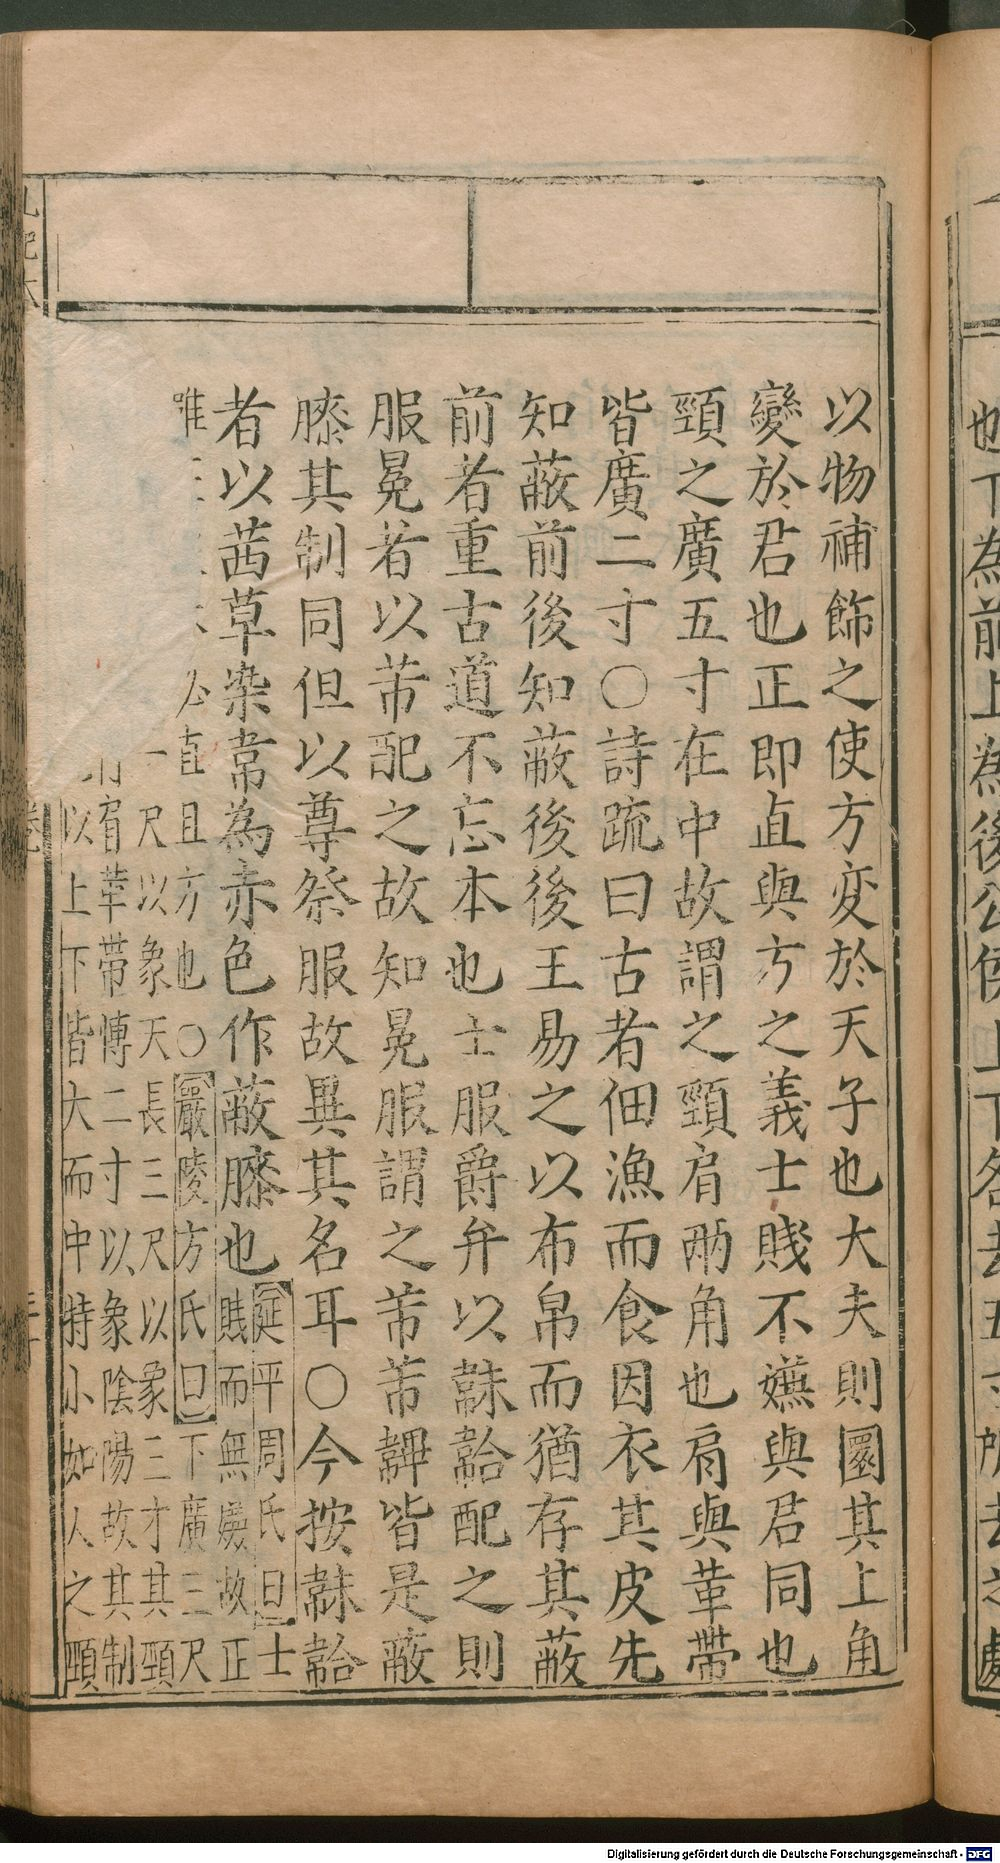 以物補飾之使方变於天子也大夫則圜其上角
變於君也正即直與方之義士賤不嫌與君同也
頸之廣五寸在中故謂之頸肩兩角也肩與革帶
皆廣二寸○詩疏曰古者佃漁而食因衣其皮先
知蔽前後知蔽後後王易之以布帛而猶存其蔽
前者重古道不忘本也士服爵弁以韎韐配之則
服冕者以芾配之故知冕服謂之芾芾韠皆是蔽
膝其制同但以尊祭服故異其名耳○今按韎韐
者以茜草染韋為赤色作蔽膝也延平周氏曰士
賤而無嫌故正
唯 必直且方也○嚴陵方氏曰下廣三尺
一尺以象天長三尺以象三才其頸
肩革帶博二寸以象陰陽故其制
以上下皆大而中特小如人之頸
卷
也下為前上為後公侯上下各去五寸所去之處
Digitalisierung gefördert durch die Deutsche Forschungsgemeinschaft - DFG